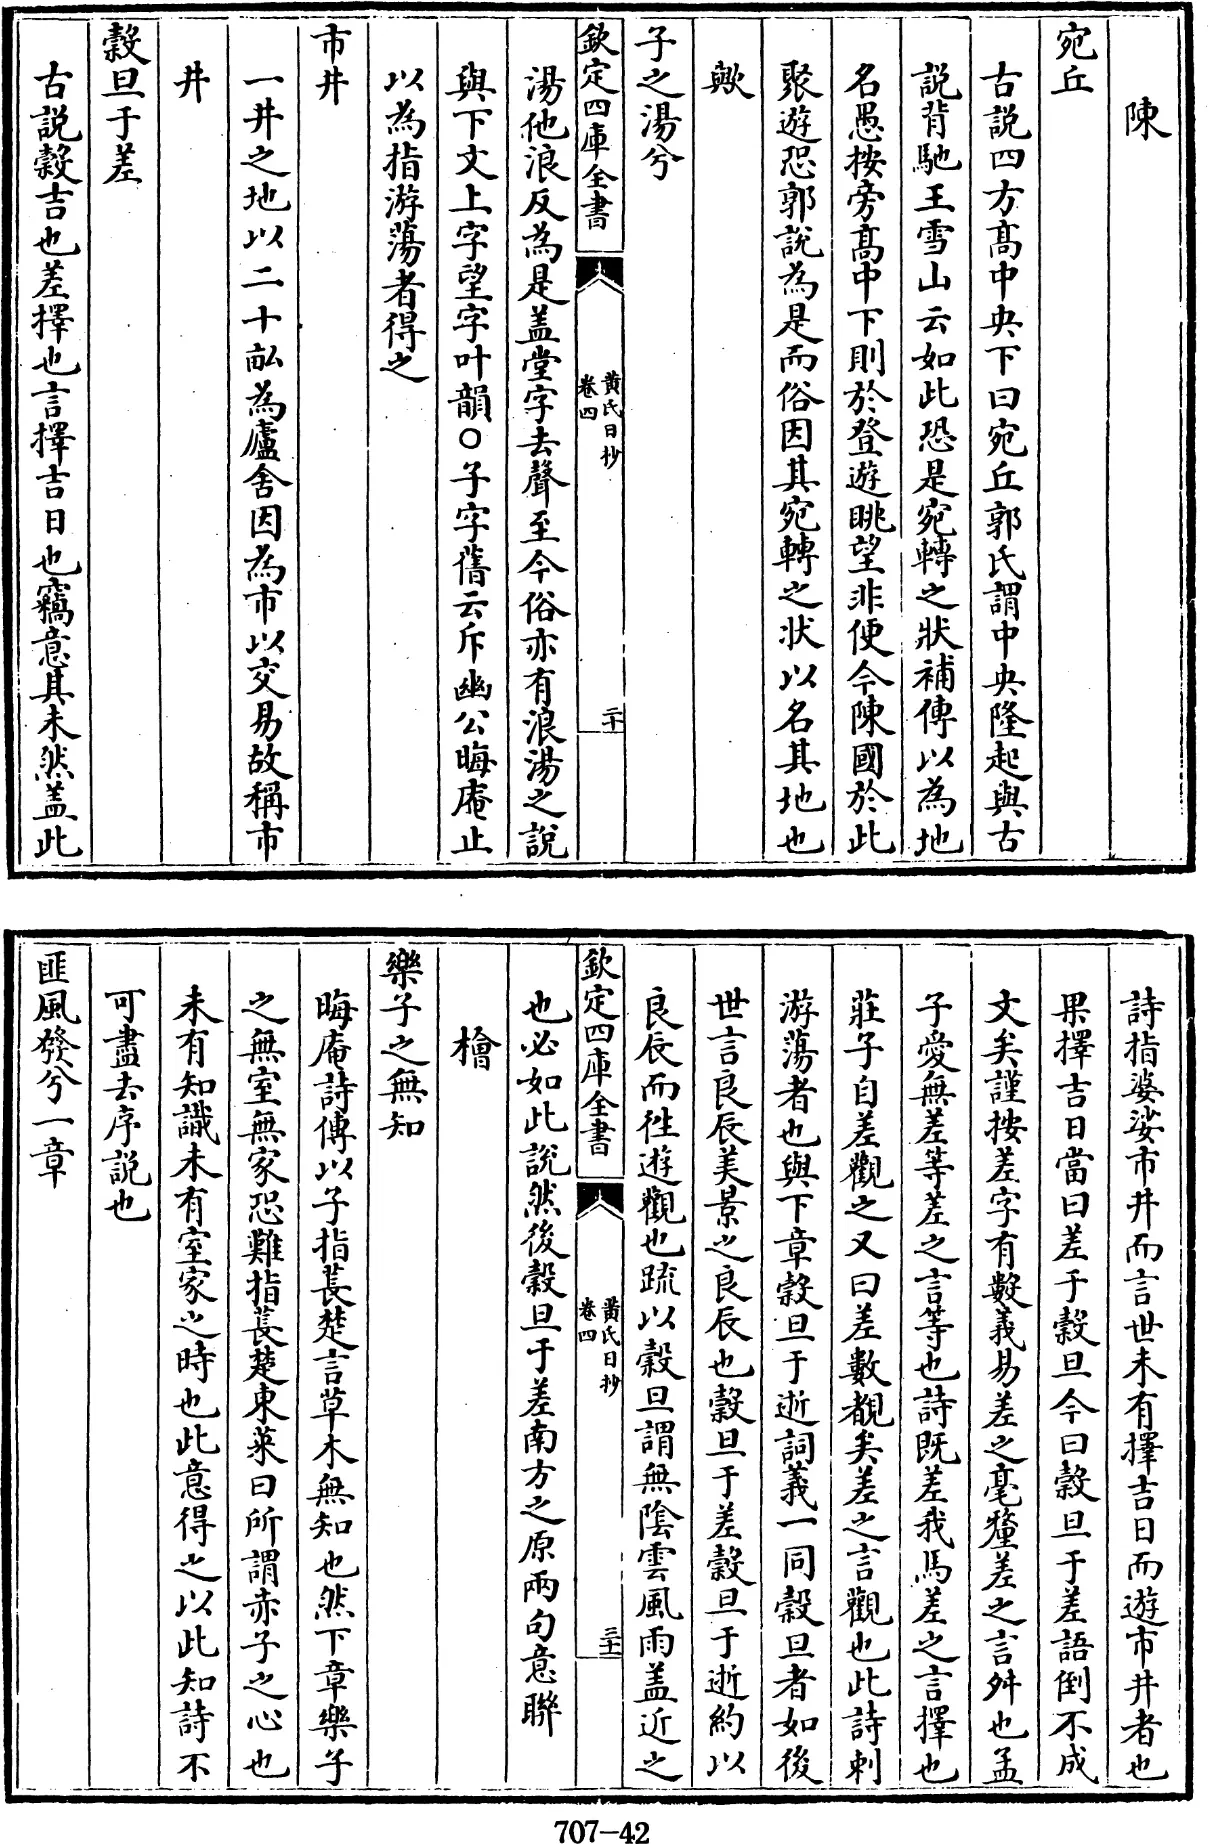 陳
宛丘
古説四方髙中央下曰宛丘郭氏謂中央隆起與古
説背馳王雪山云如此恐是宛轉之狀補傳以為地
名愚按旁髙中下則於登遊眺望非便今陳國於此
聚遊恐郭説為是而俗因其宛轉之狀以名其地也
歟
子之湯兮
欽定四庫全書
黄氏日抄
卷四
二十
湯他浪反為是盖堂字去聲至今俗亦有浪湯之説
與下文上字望字叶韻○子字舊云斥幽公晦庵止
以為指游蕩者得之
市井
一井之地以二十畝為廬舍因為市以交易故稱市
井
榖旦于差
古説榖吉也差擇也言擇吉日也竊意其未然盖此
詩指婆娑市井而言世未有擇吉日而遊市井者也
果擇吉日當曰差于榖旦今曰榖旦于差語倒不成
文矣謹按差字有數義易差之毫釐差之言舛也孟
子愛無差等差之言等也詩既差我馬差之言擇也
莊子自差觀之又曰差數覩矣差之言觀也此詩刺
游蕩者也與下章榖旦于逝詞義一同榖旦者如後
世言良辰美景之良辰也榖旦于差榖旦于逝約以
良辰而徃遊觀也疏以榖旦謂無陰雲風雨盖近之
欽定四庫全書
黄氏日抄
卷四
三十一
也必如此説然後榖旦于差南方之原兩句意聯
檜
樂子之無知
晦庵詩傳以子指萇楚言草木無知也然下章樂子
之無室無家恐難指萇楚東萊曰所謂赤子之心也
未有知識未有室家之時也此意得之以此知詩不
可盡去序説也
匪風發兮一章
707-42